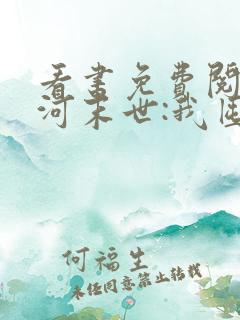 看書免費閱
河末世:我
何福生
未经同意禁止转载